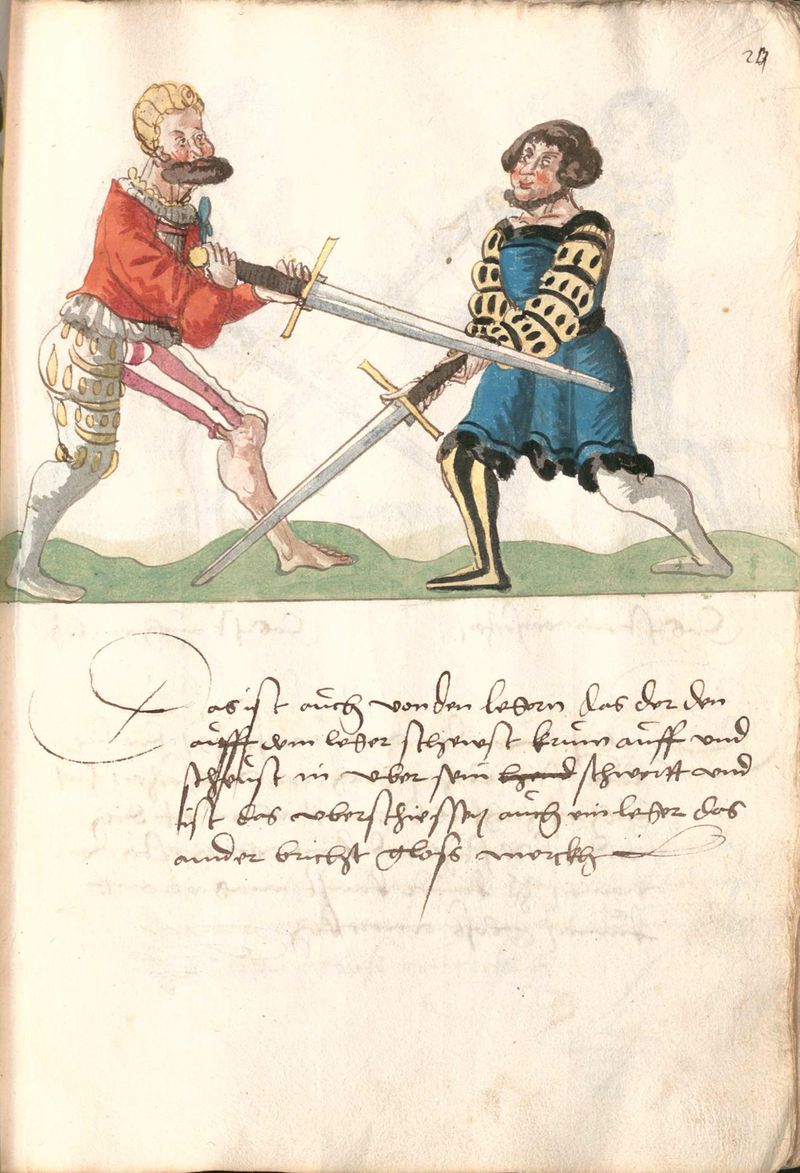 24
Das ist auch von den legern das der den
aufff dem leger schewst krum auff und
scheust in vber sein hend schwertt und
ist das vberschiessen auch ein leger das
ander bricht gloss merckh